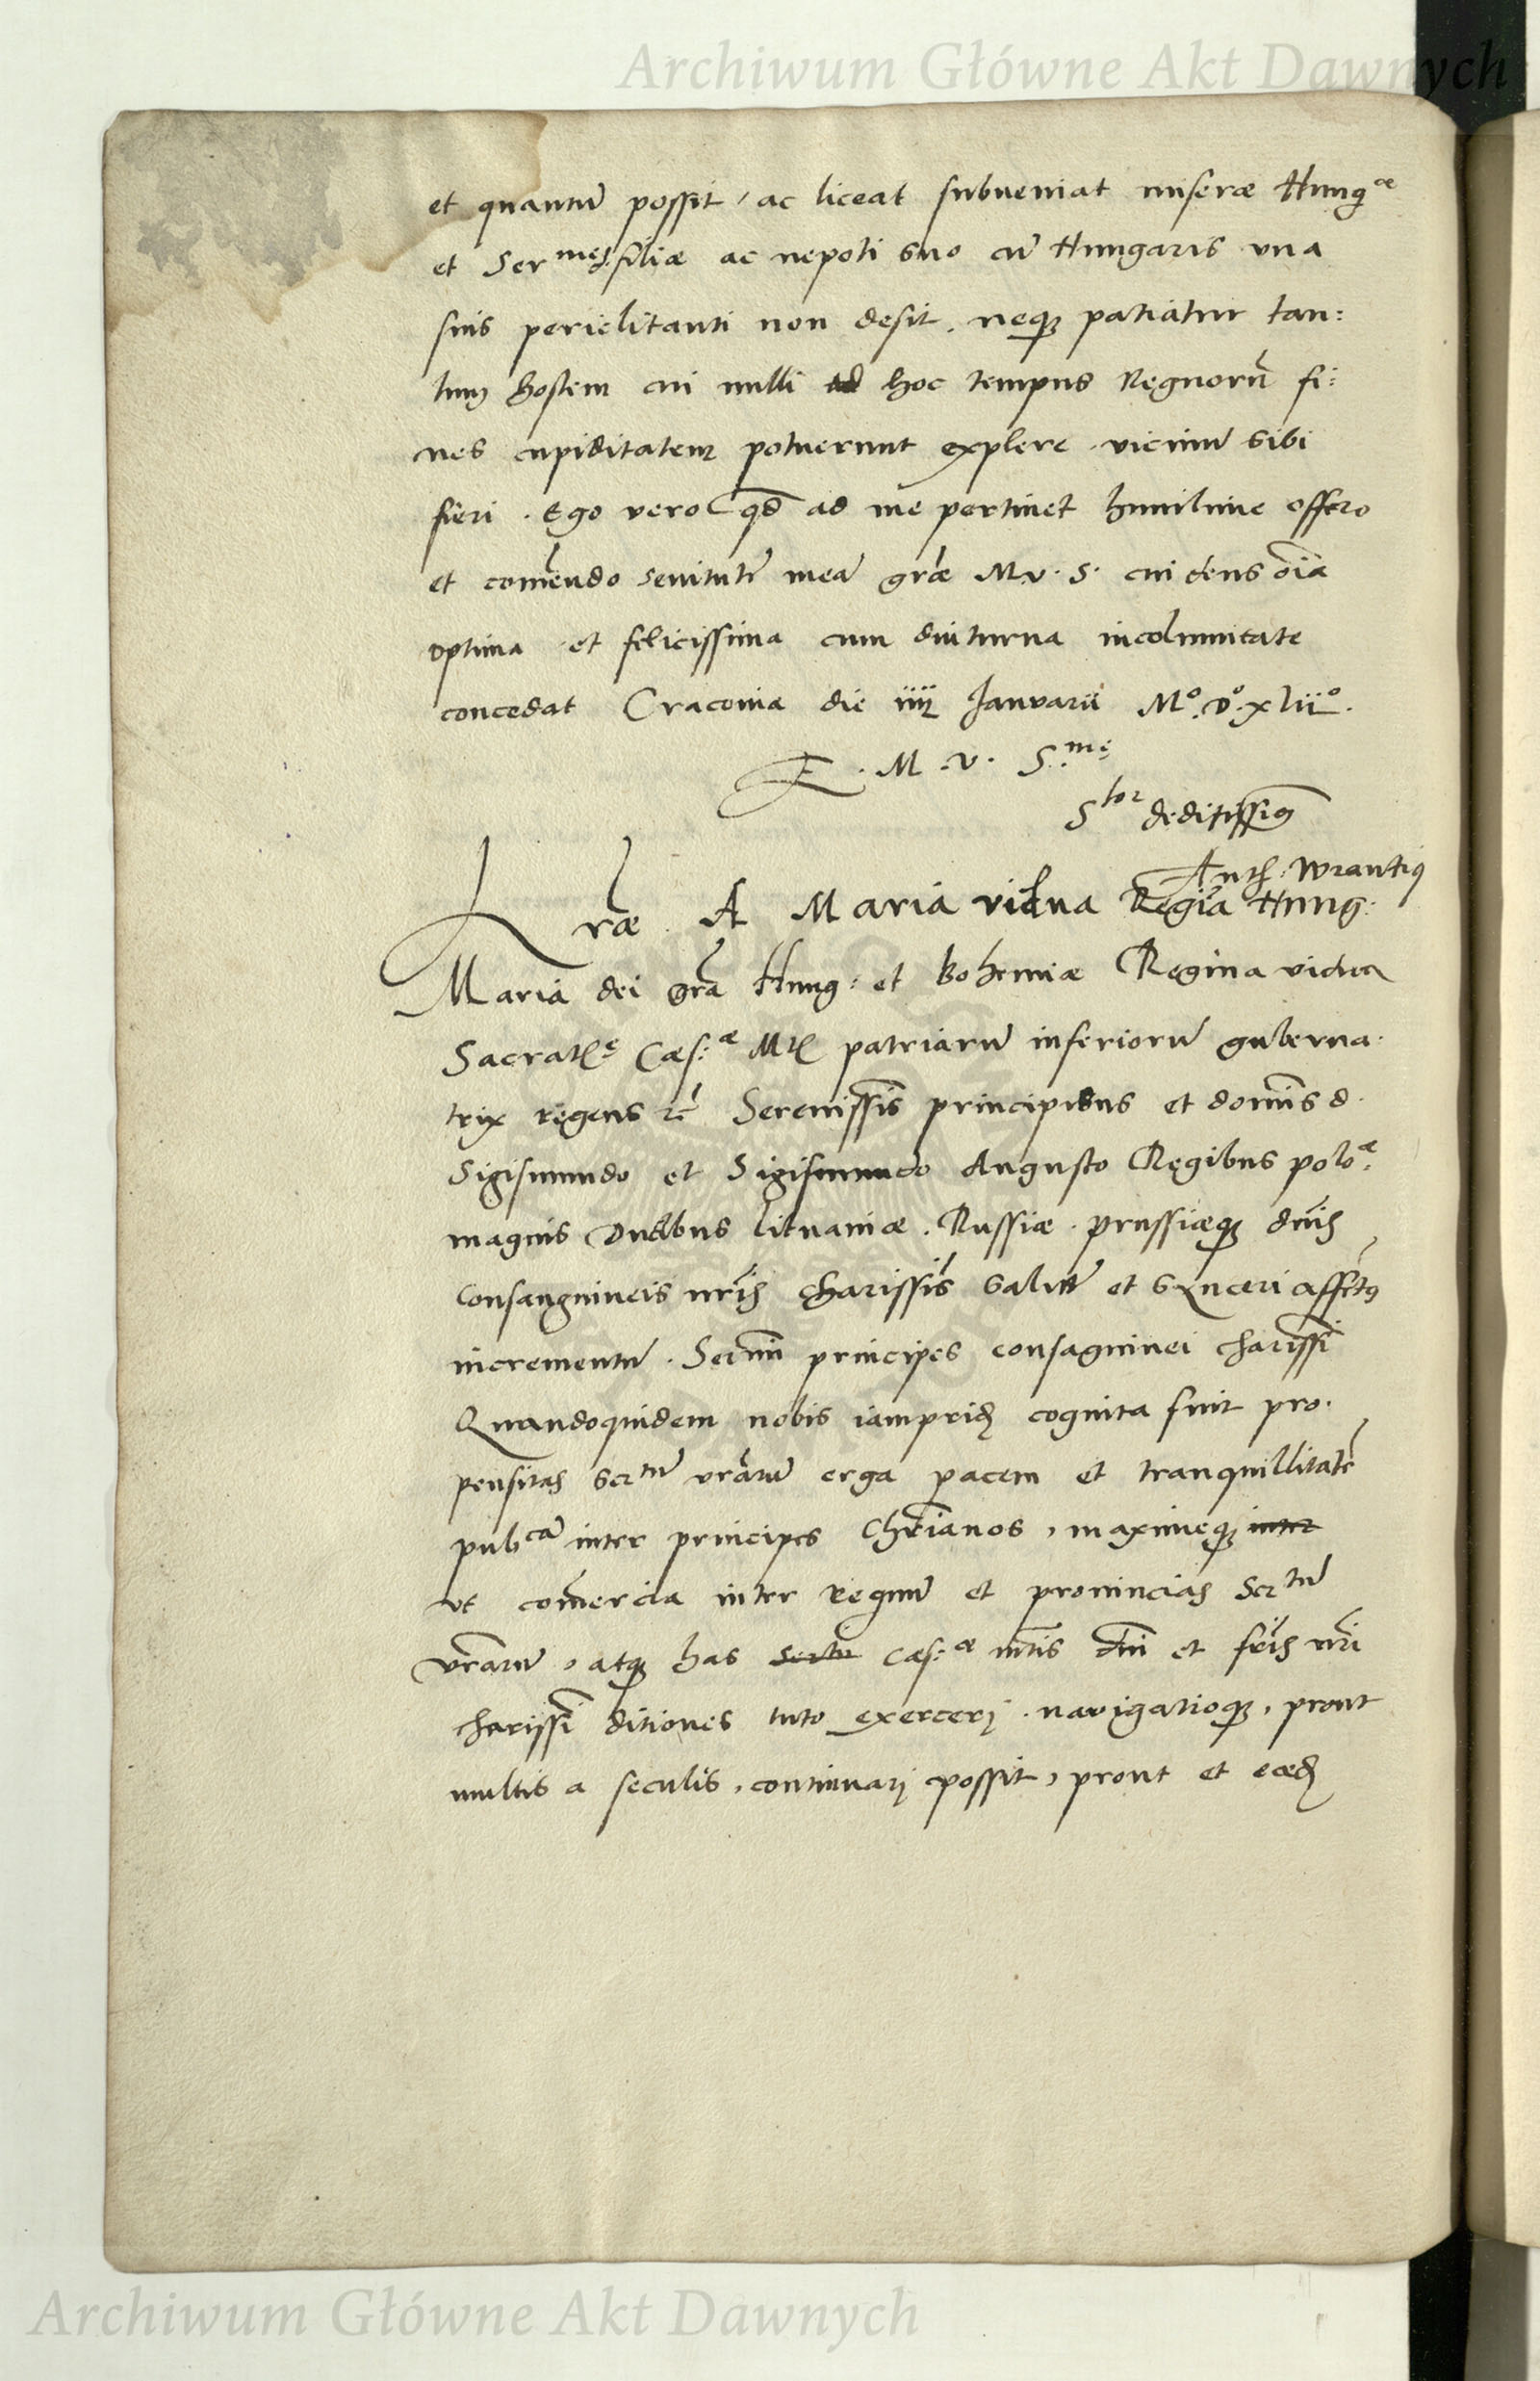 Archiwum Główne Akt Dawnych
et quantũ possit, ac liceat subueniat miseræ Hungæ
et Sermę filiæ ac nepoti suo cũ Hungaris una
suis periclitanti non desit. neq; patiatur tan:
tum hostem cui nulli ad hoc tempus Regnorũ fi:
nes cupiditatem potuerunt explere. vicinũ sibi
fieri. Ego vero qd ad me pertinet humilime offero
et comẽndo seuitutẽ meã grãe M. v. S. cui deus oĩa
optima et felicissima cum diuturna incolumitate
concedat Cracoviæ die iiij Januarii Mo. Do. xlii o.
E. M. V. S.mę
Stor deditissimus
Anth. Wrantius
Lrãe A Maria vidua Regĩa Hung:
Maria dei grã Hung: et Bohemiæ Regina vidua
Sacratę Cæs:æ Mtis patriarũ inferiorũ guberna.
trix regens zc̃ Serenissĩs principibus et domĩs d.
Sigismundo et Sigismundo Augusto Regibus poloæ.
magnis Ducibus lituaniæ. Russiæ. prussiæq; dnĩs
consanguineis nrĩs charissĩs salutẽ et synceri affectus
incrementũ. Sermĩ principes consaguinei charissĩ
Quandoquidem nobis iampridẽ cognita sint pro.
pensitas Sertũ vrãrũ erga pacem et tranquillitatẽ
pubcã inter principes Chrĩanos, maximeq; inter
ut comẽrcia inter regnũ et prouincias Sertũ
vrãrũ, atq; has Sertũ Cæs:æ mtĩs dnĩ et frĩs nrĩ
charissĩ ditiones tuto exercerj. navigatioq;, prout
multis a seculis, continuarj possit, prout et eædẽ
Archiwum Główne Akt Dawnych